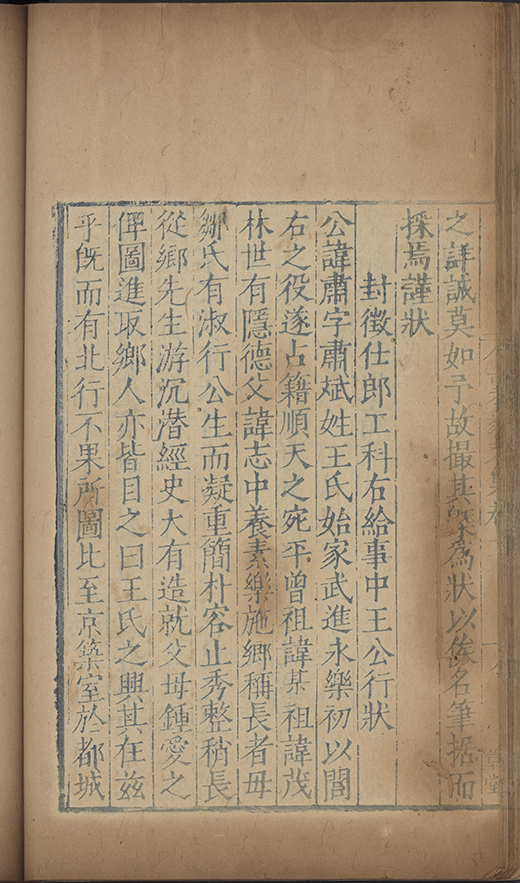 之詳誠莫如予故撮其槩為狀以俟名筆据而
採焉謹狀
封徵仕郎工科右給事中王公行狀
公諱肅字肅斌姓王氏始家武進永樂初以閭
右之役遂占籍順天之宛平曾祖諱某祖諱茂
林世有隱德父諱志中養素樂施鄉稱長者母
鄒氏有淑行公生而凝重簡朴容止秀整稍長
從鄉先生游沉潜經史大有造就父母鍾愛之
俾圖進取鄉人亦皆目之曰王氏之興其在兹
乎旣而有北行不果所圖比至京築室於都城